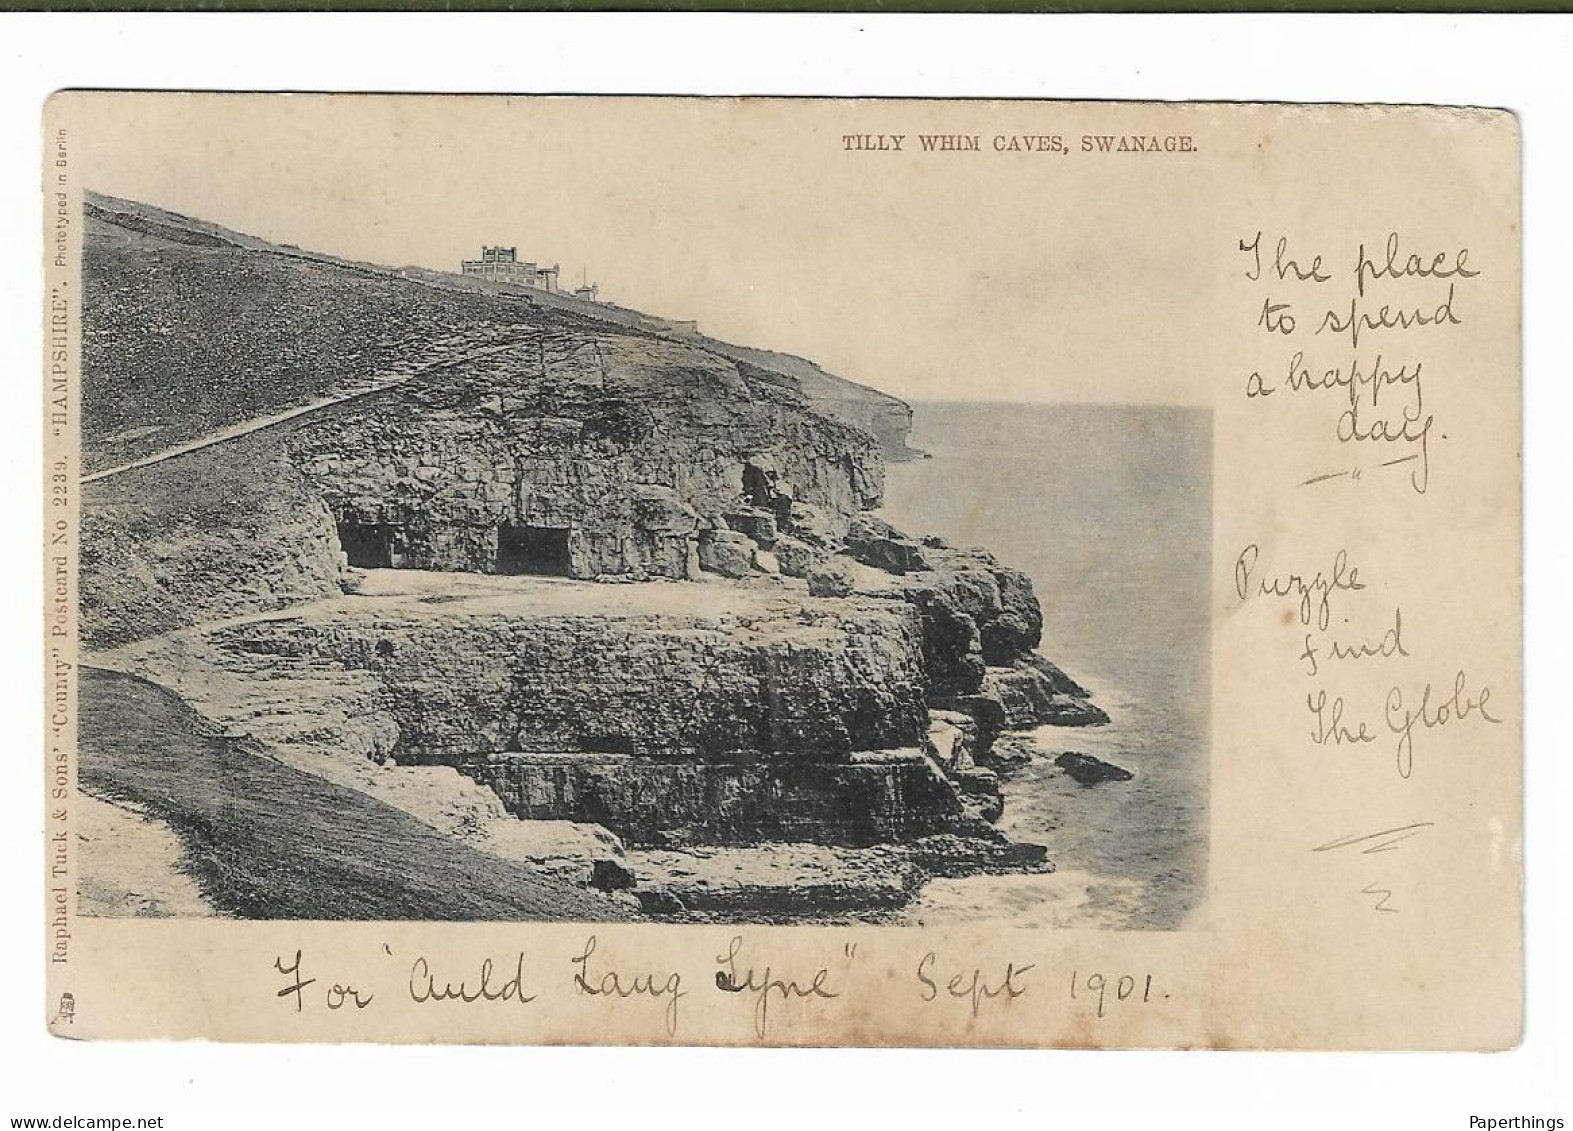 TILLY WHIM CAVES, SWANAGE.
The place
to spend
a happy
day.
Puzzle
find
The Globe
For "Auld Lang Syne" Sept 1901.
Raphael Tuck & Sons' "County" Postcard No 2239. "HAMPSHIRE". Phototyped in Berlin
www.delcampe.net
Paperthings